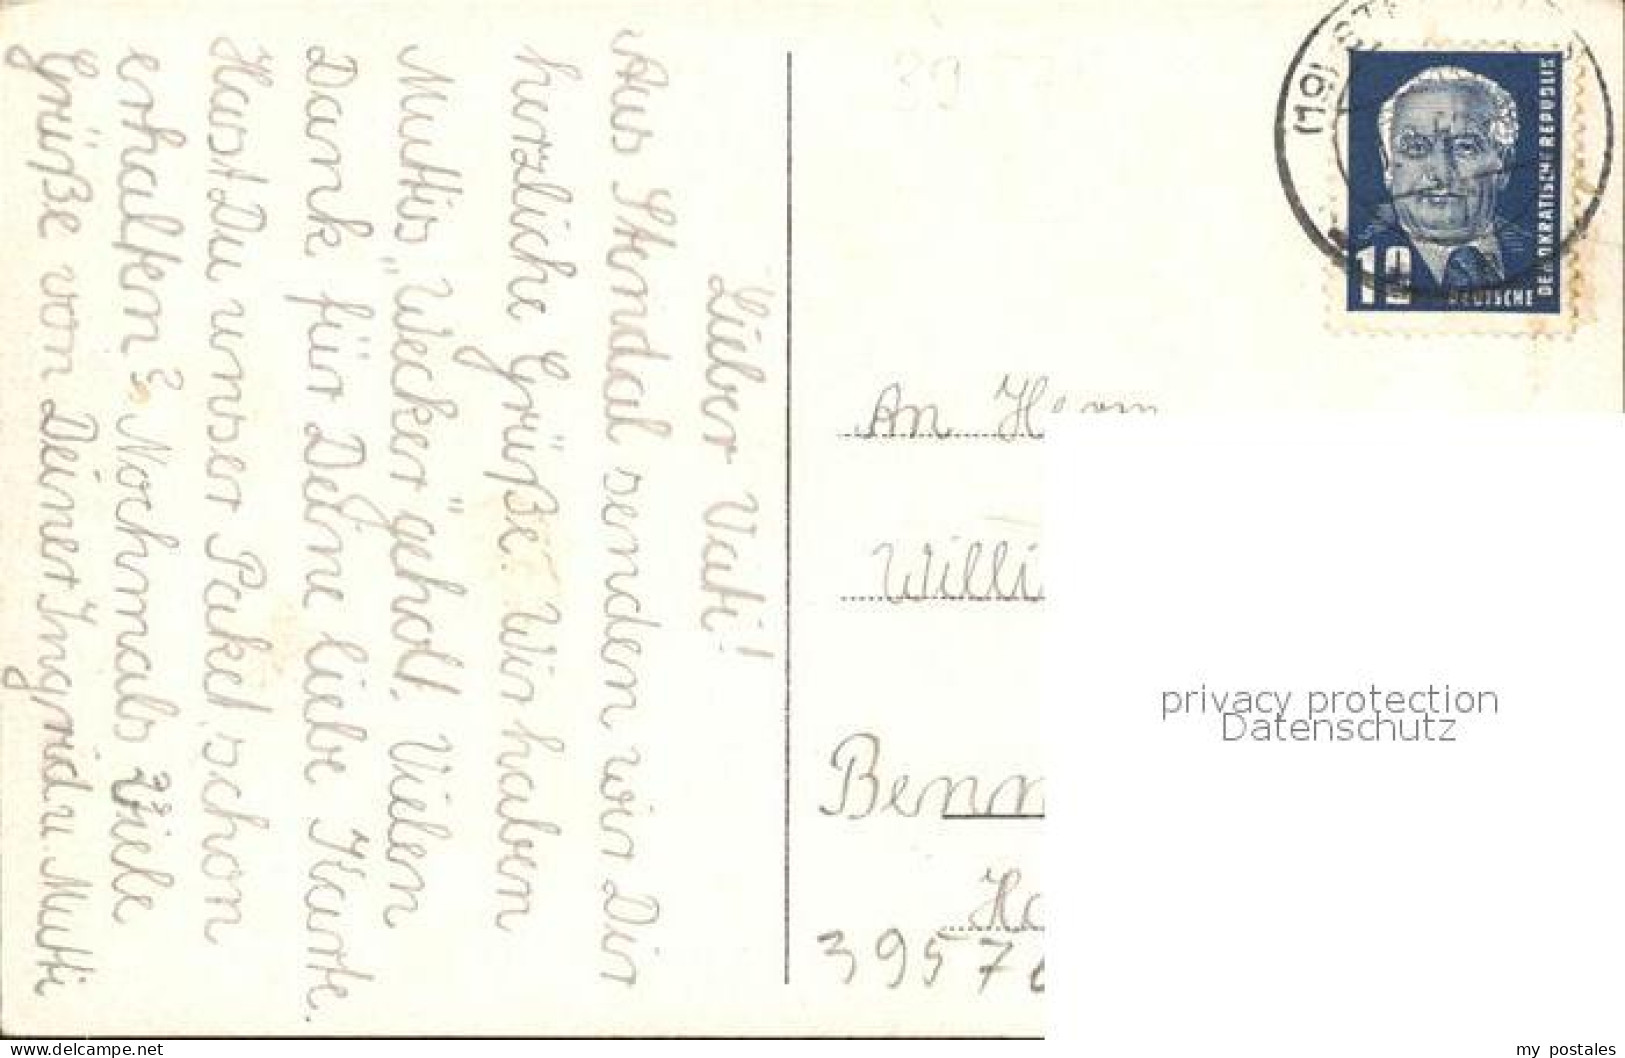 Lieber Vati!
Aus Stendal senden wir Dir
herzliche Grüße. Wir haben
Muttis „Wecker" geholt. Vielen
Dank für Deine liebe Karte.
Hast Du unser Paket schon
erhalten? Nochmals viele
Grüße von Deiner Ingrid u. Mutti
(19)
12
DEUTSCHE
DEMOKRATISCHE REPUBLIK
An Herrn
Willi
Benn
Ha
3957
privacy protection
Datenschutz
www.delcampe.net
my_postales